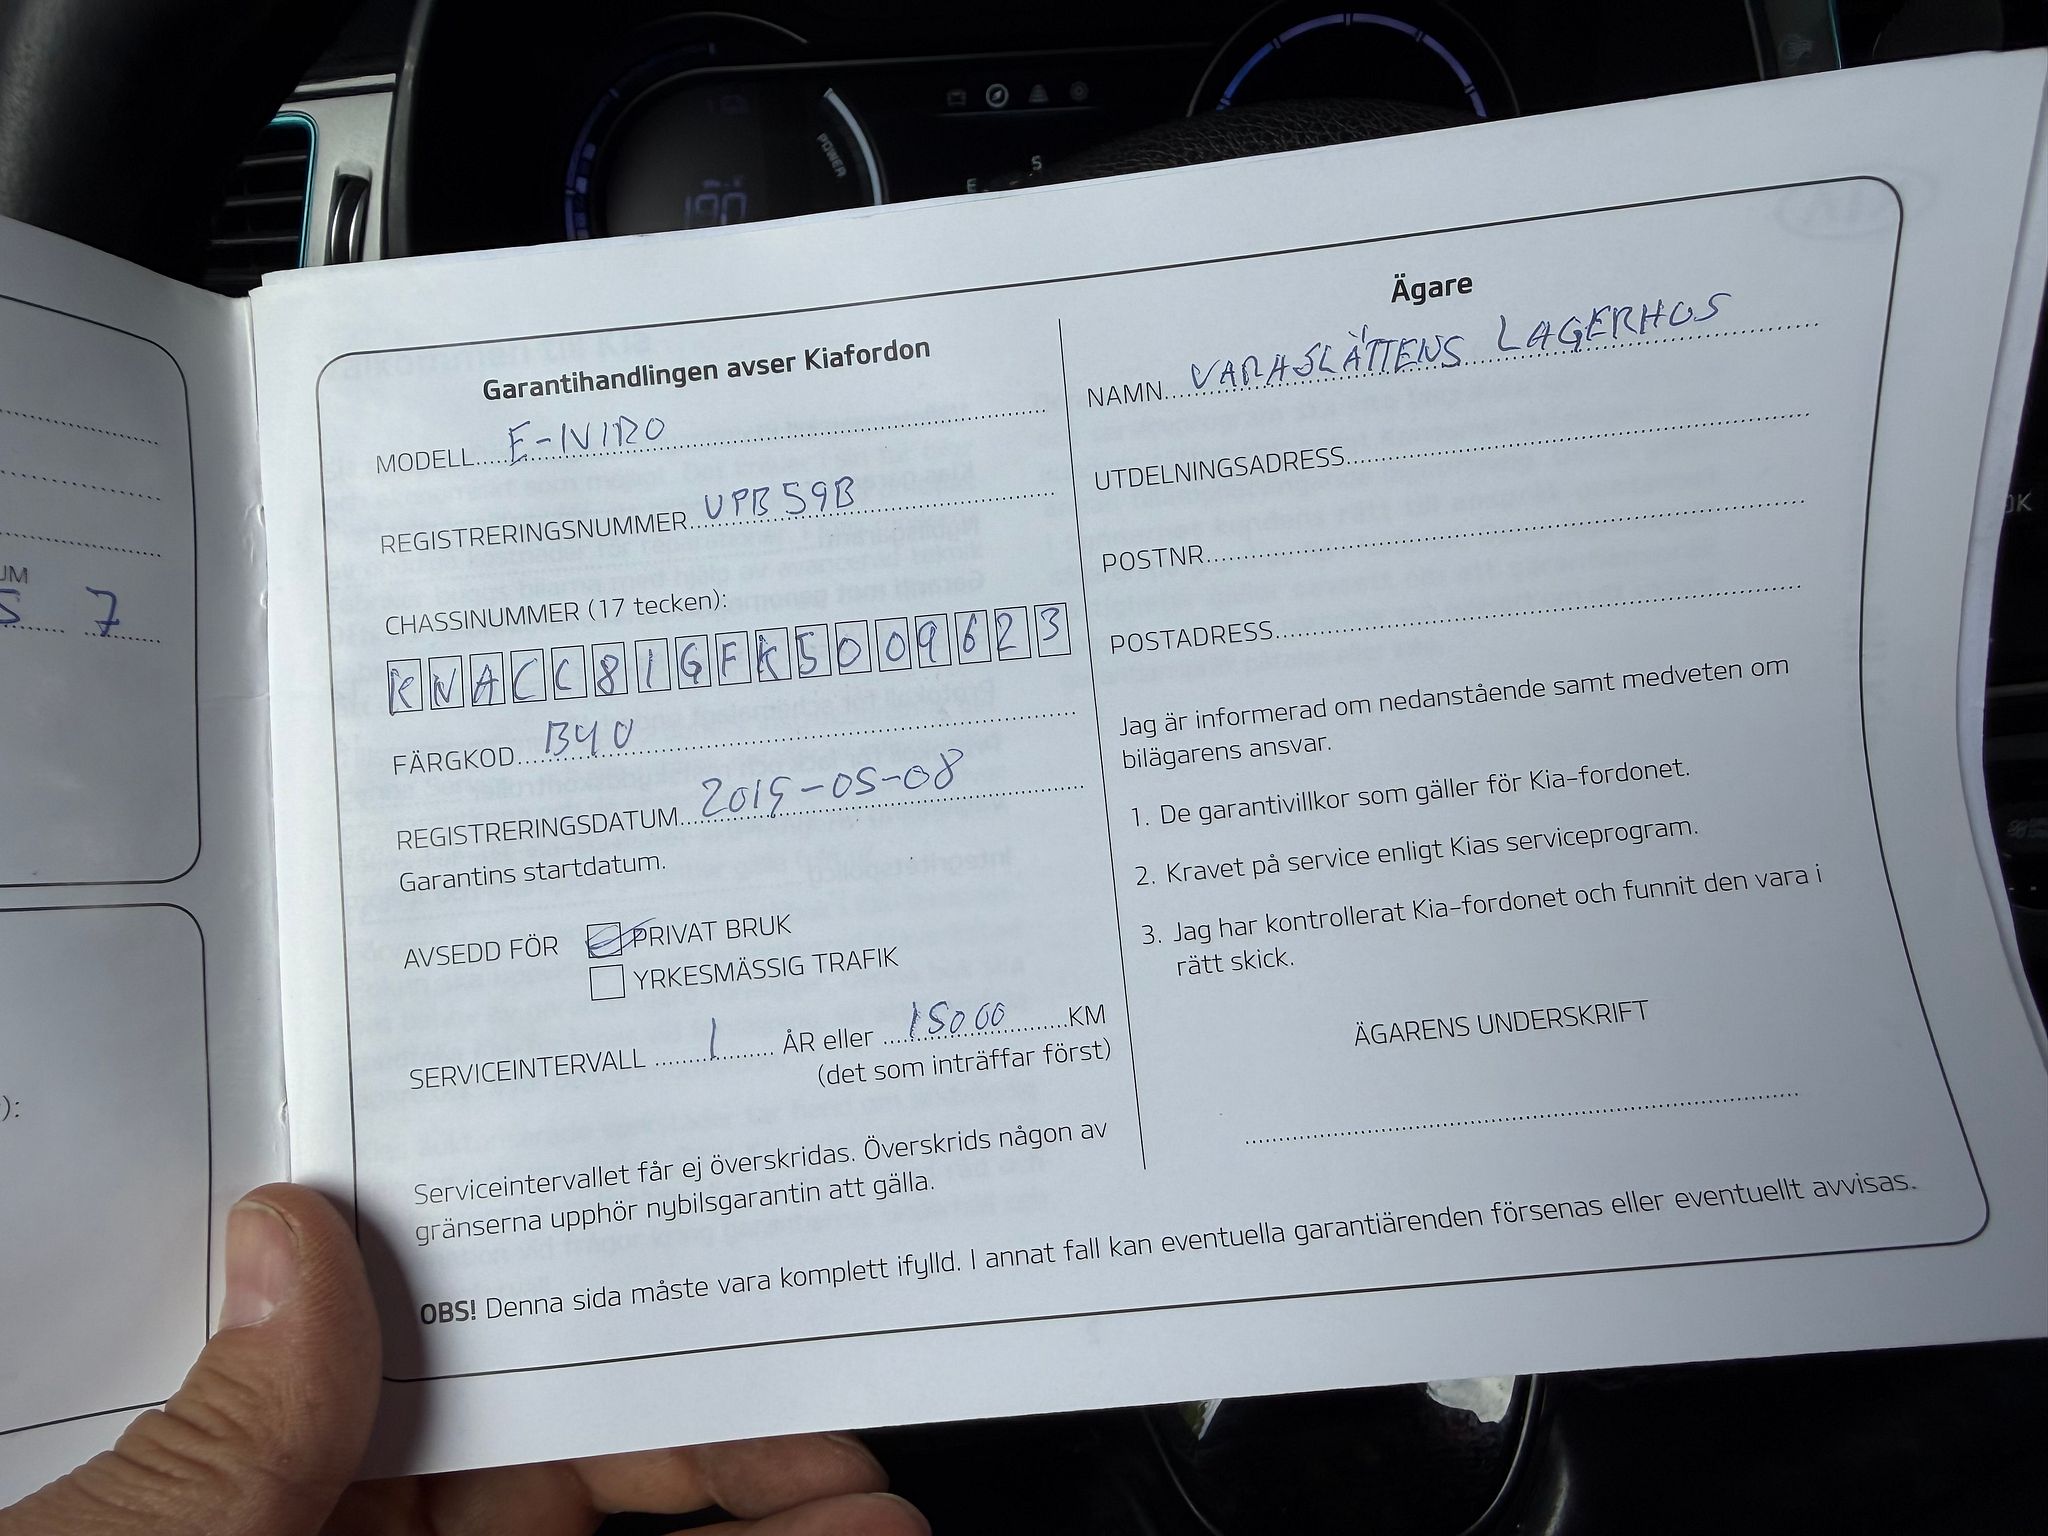 POWER
190
E
S
OK
UM
S 7
):
Garantihandlingen avser Kiafordon
MODELL E-NIRO
REGISTRERINGSNUMMER UPB59B
CHASSINUMMER (17 tecken):
KNACC81GFK5009623
FÄRGKOD B4U
REGISTRERINGSDATUM 2019-05-08
Garantins startdatum.
AVSEDD FÖR PRIVAT BRUK
YRKESMÄSSIG TRAFIK
SERVICEINTERVALL 1 ÅR eller 15000 KM
(det som inträffar först)
Serviceintervallet får ej överskridas. Överskrids någon av
gränserna upphör nybilsgarantin att gälla.
Ägare
NAMN VARASLÄTTENS LAGERHUS
UTDELNINGSADRESS
POSTNR
POSTADRESS
Jag är informerad om nedanstående samt medveten om
bilägarens ansvar.
1. De garantivillkor som gäller för Kia-fordonet.
2. Kravet på service enligt Kias serviceprogram.
3. Jag har kontrollerat Kia-fordonet och funnit den vara i
rätt skick.
ÄGARENS UNDERSKRIFT
OBS! Denna sida måste vara komplett ifylld. I annat fall kan eventuella garantiärenden försenas eller eventuellt avvisas.